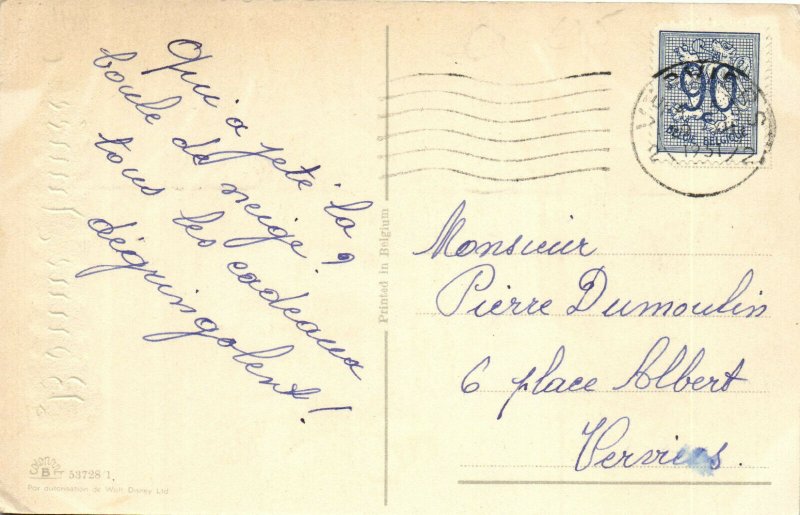 Qui a jeté la
boule de neige?
tous les cadeaux
dégringolent!
Bonne Année
Printed in Belgium
53728/1.
Par autorisation de Walt Disney Ltd
90
c
BELGIE-BELGIQUE
Monsieur
Pierre Dumoulin
6 place Albert
Verviers.